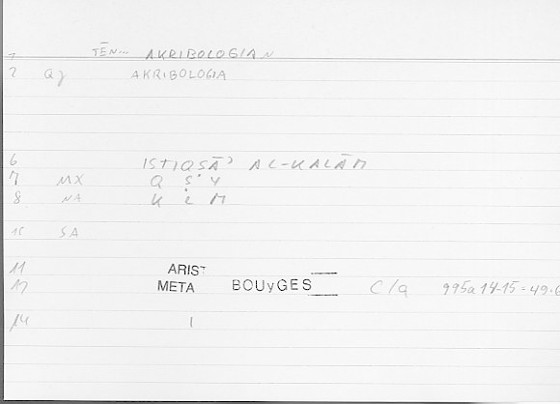 1 TĒN~ AKRIBOLOGIAN
2 Qg AKRIBOLOGIA
6 ISTIQSĀʾ AL-KALĀM
7 MX Q Ṣ Y
8 NA K L M
10 SA
11 ARIST
META BOUyGES C/a 995a14-15=49.6
14 1